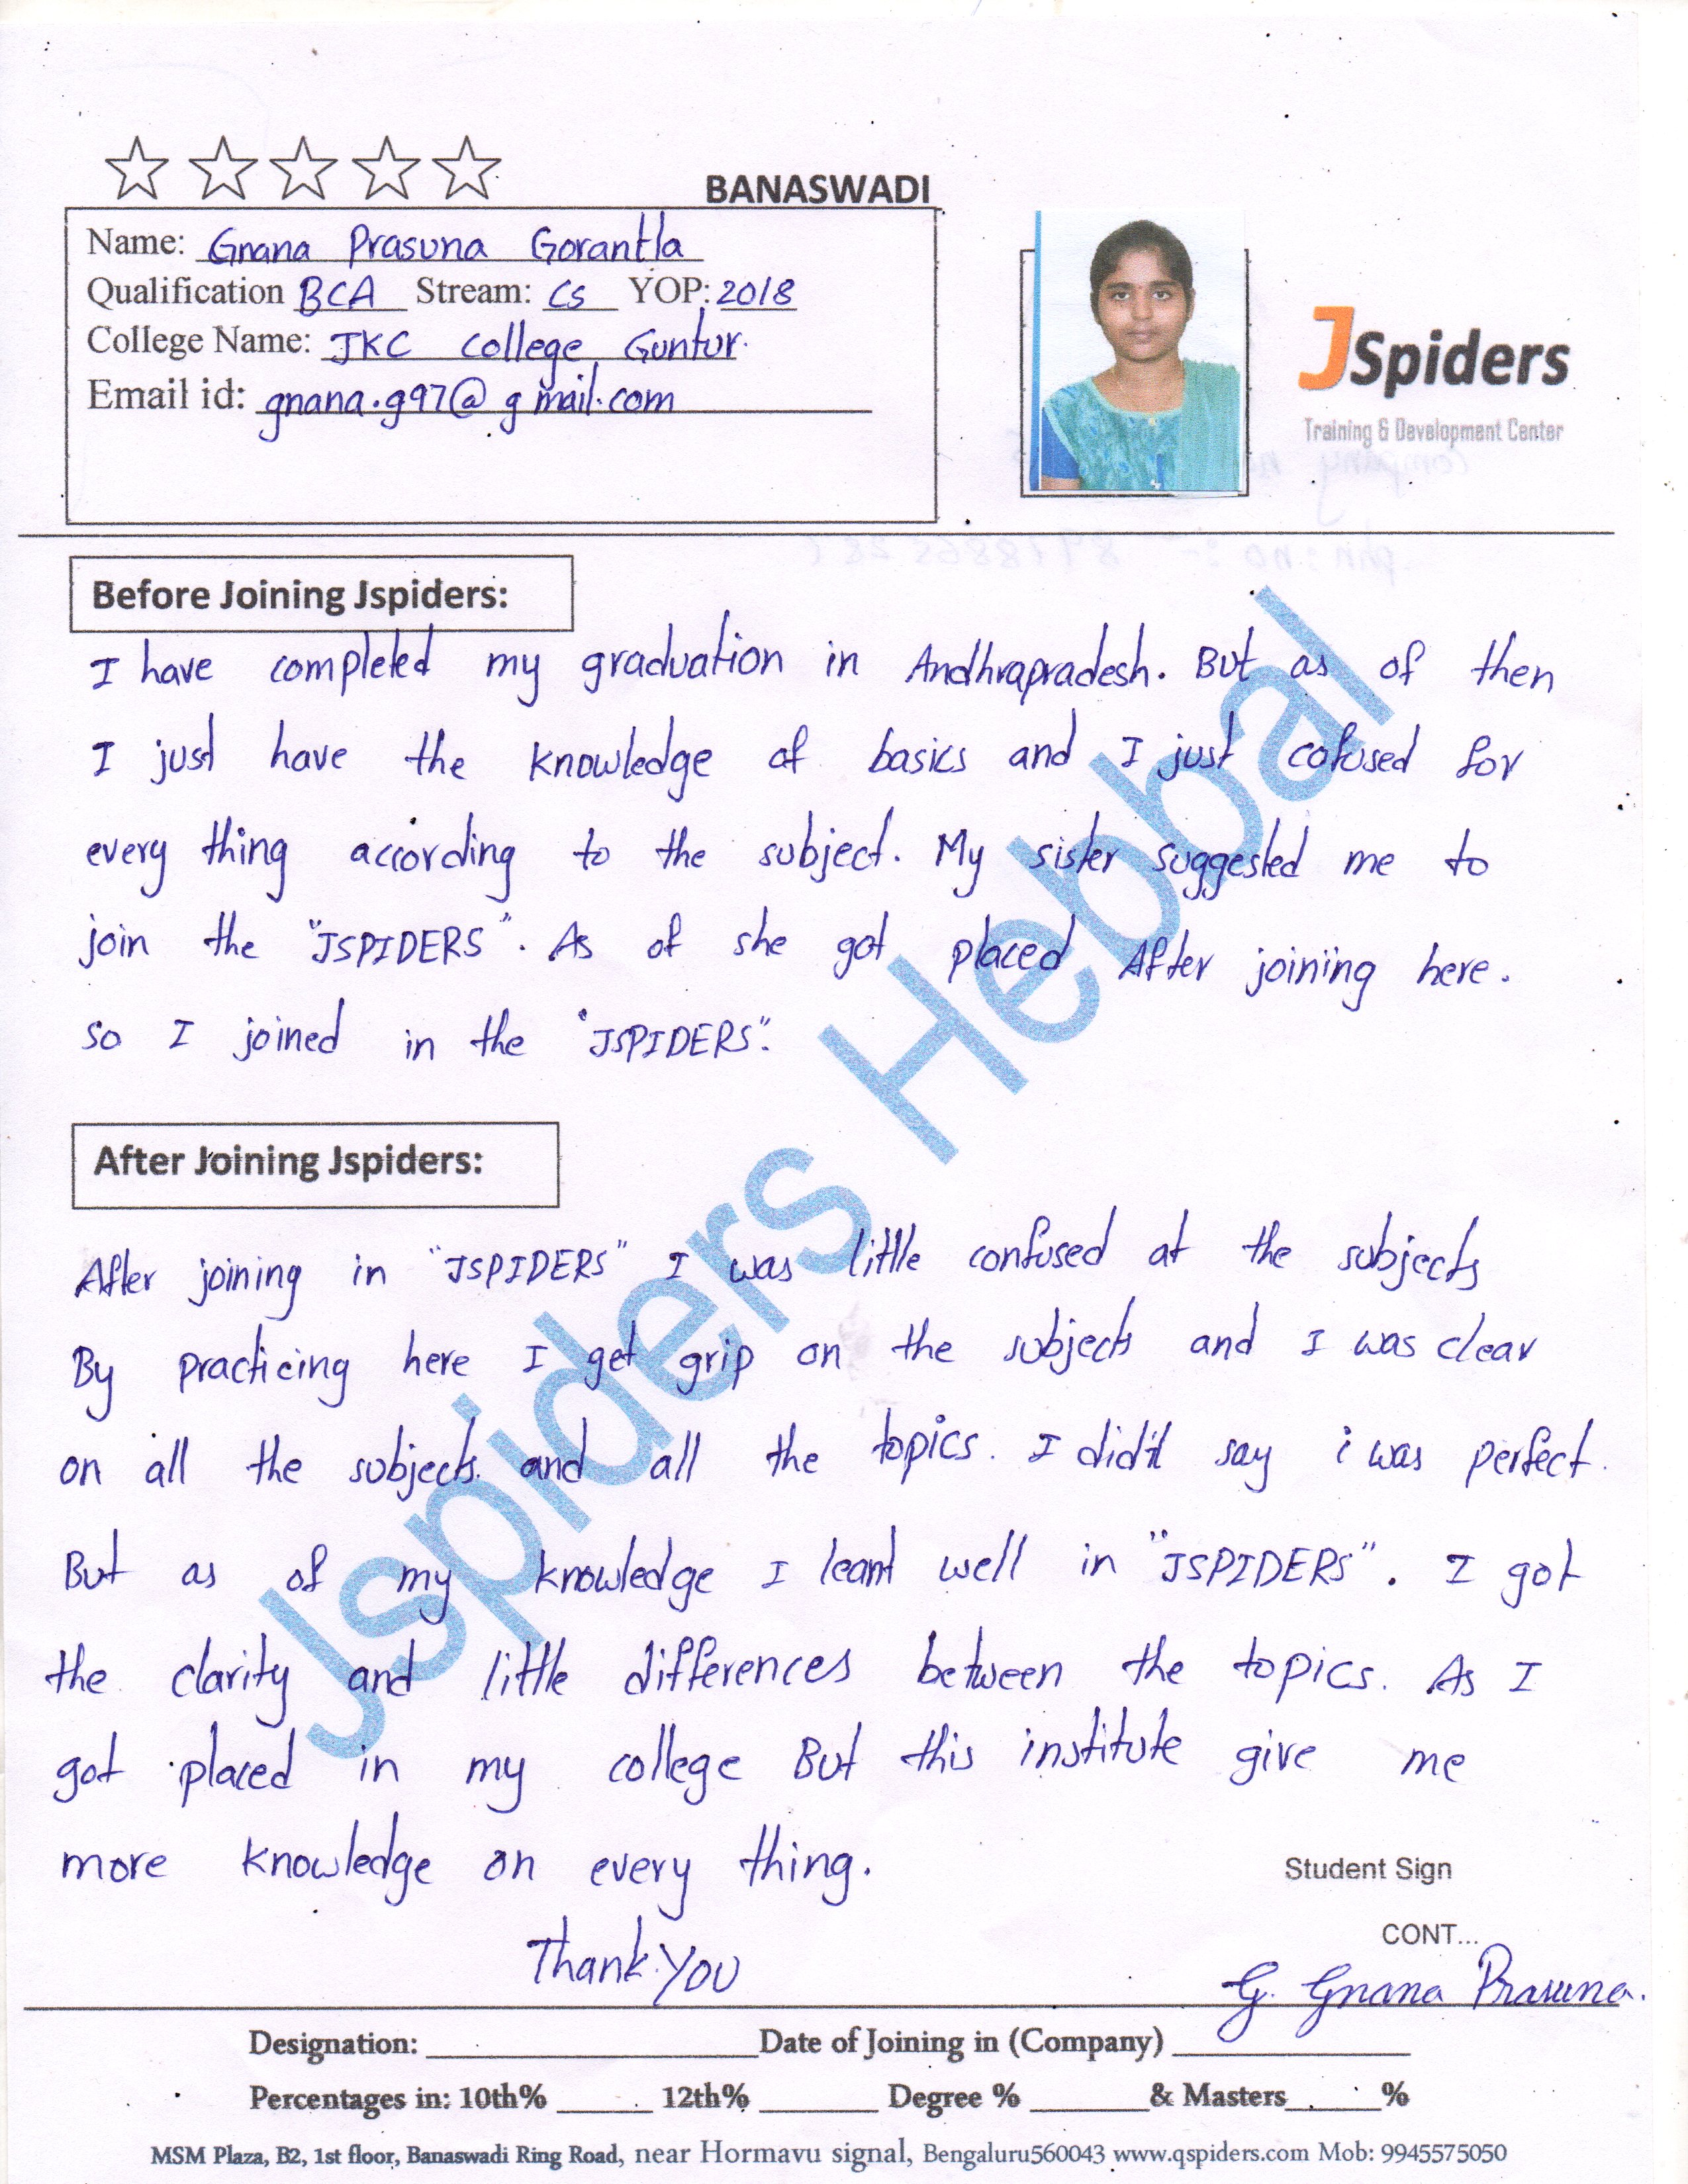 BANASWADI
Name: Gnana Prasuna Gorantla
Qualification BCA Stream: Cs YOP: 2018
College Name: JKC College Guntur.
Email id: gnana.g97@gmail.com
JSpiders
Training & Development Center
Before Joining Jspiders:
I have completed my graduation in Andhrapradesh. But as of then
I just have the knowledge of basics and I just cofused for
every thing according to the subject. My sister suggested me to
join the "JSPIDERS". As of she got placed After joining here.
so I joined in the "JSPIDERS".
After Joining Jspiders:
After joining in "JSPIDERS" I was little confused at the subjects
By practicing here I get grip on the subjects and I was clear
on all the subjects. and all the topics. I did't say i was perfect.
But as of my knowledge I leant well in "JSPIDERS". I got
the clarity and little differences between the topics. As I
got placed in my college But this institute give me
more knowledge on every thing.
Thank You
Student Sign
CONT...
G. Gnana Prasuna.
Designation: Date of Joining in (Company)
Percentages in: 10th% 12th% Degree % & Masters %
MSM Plaza, B2, 1st floor, Banaswadi Ring Road, near Hormavu signal, Bengaluru560043 www.qspiders.com Mob: 9945575050
Jspiders Hebbal